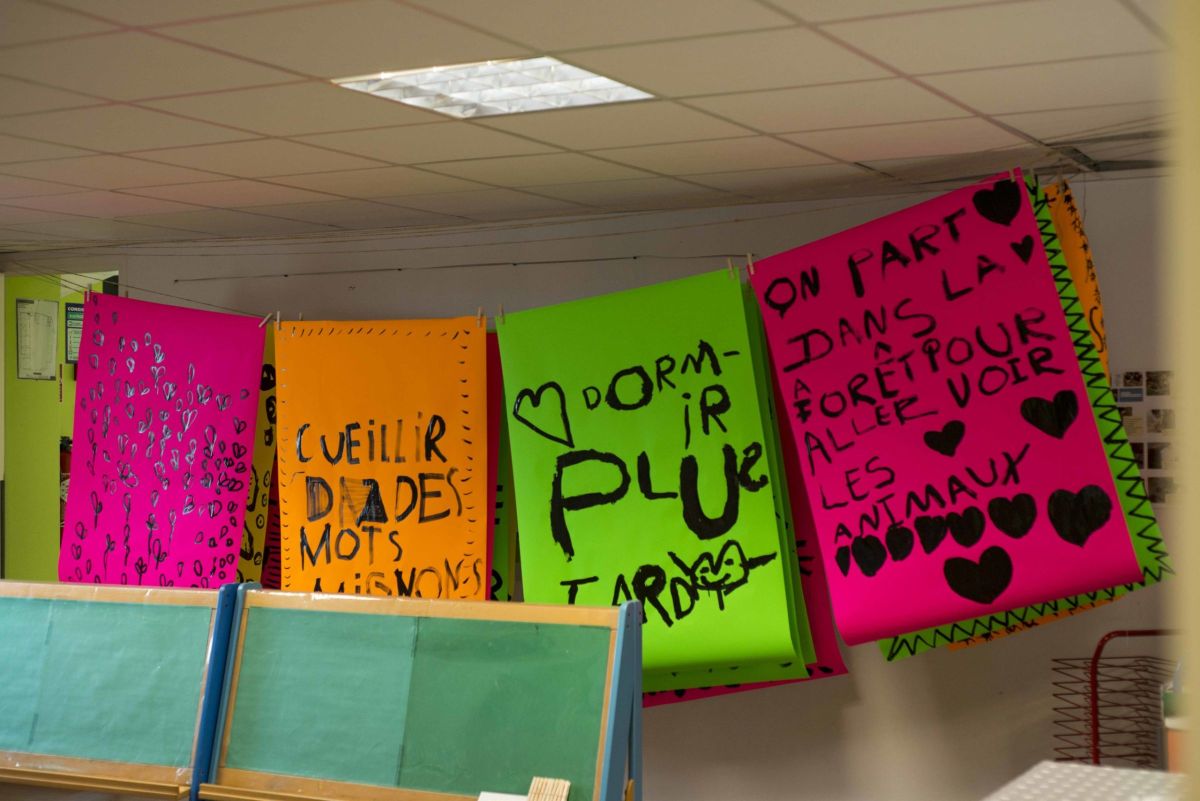 CUEILLIR
DES
MOTS
MIGNONS
DORM-
IR
PLUS
TARD
ON PART
DANS LA
FORÊT POUR
ALLER VOIR
LES
ANIMAUX